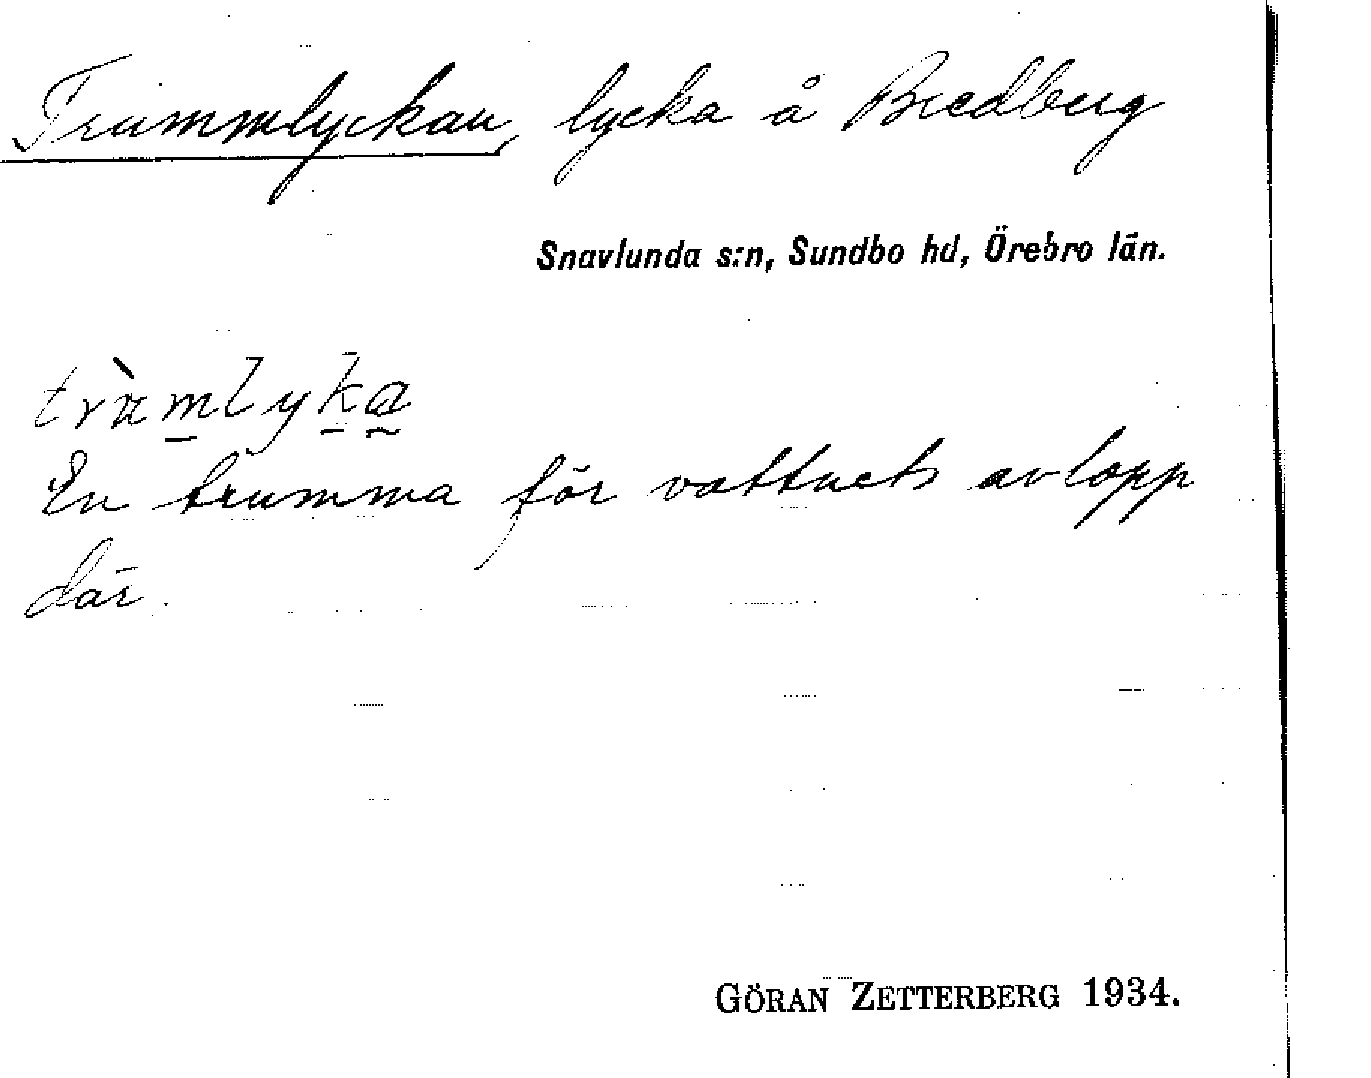 Trummlyckan, lycka å Bredberg
Snavlunda s:n, Sundbo hd, Örebro län.
tràmlyka
En trumma för vattnets avlopp
där.
GÖRAN ZETTERBERG 1934.